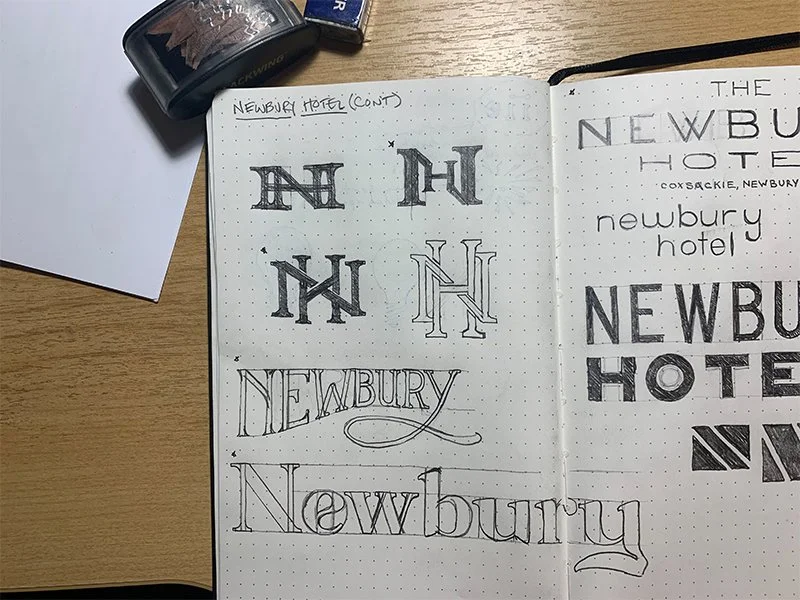 NEWBURY HOTEL (CONT)
NH
NH
NH
NH
NEWBURY
Newbury
THE
NEWBU
HOTE
COXSACKIE, NEWBURY
newbury
hotel
NEWBU
HOTE